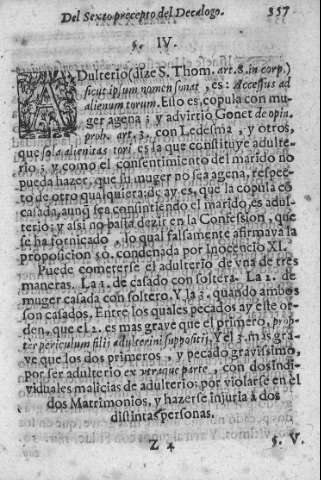 Del Sexto precepto del Decalogo. 357
§. IV.
ADulterio (dize S. Thom. art. 8. in corp.)
sicut ipsum nomen sonat, es: Accessus ad
alienum torum. Ello es, copula con mu-
ger agena; y advirtiò Gonet de opin.
prob. art. 3. con Ledesma, y otros,
que sola alienitas tori, es la que constituye adulte-
rio; y como el consentimiento del marido no
pueda hazer, que su muger no sea agena, respec-
to de otro qualquiera: de ay es, que la copula cō
casada, aunq̄ sea consintiendo el marido, es adul-
terio; y assi no basta dezir en la Confession, que
se ha fornicado, lo qual falsamente afirmava la
proposicion 50. condenada por Inocencio XI.
Puede cometerse el adulterio de vna de tres
maneras. La 1. de casado con soltera. La 2. de
muger casada con soltero. Y la 3. quando ambos
son casados. Entre los quales pecados ay este or-
den, que el 2. es mas grave que el primero, prop-
ter periculum filij adulterini suppositi. Y el 3. mas gra-
ve que los dos primeros, y pecado gravissimo,
por ser adulterio ex utraque parte, con dos indi-
viduales malicias de adulterio; por violarse en el
dos Matrimonios, y hazerse injuria à dos
distintas personas.
Z 4 §. V.